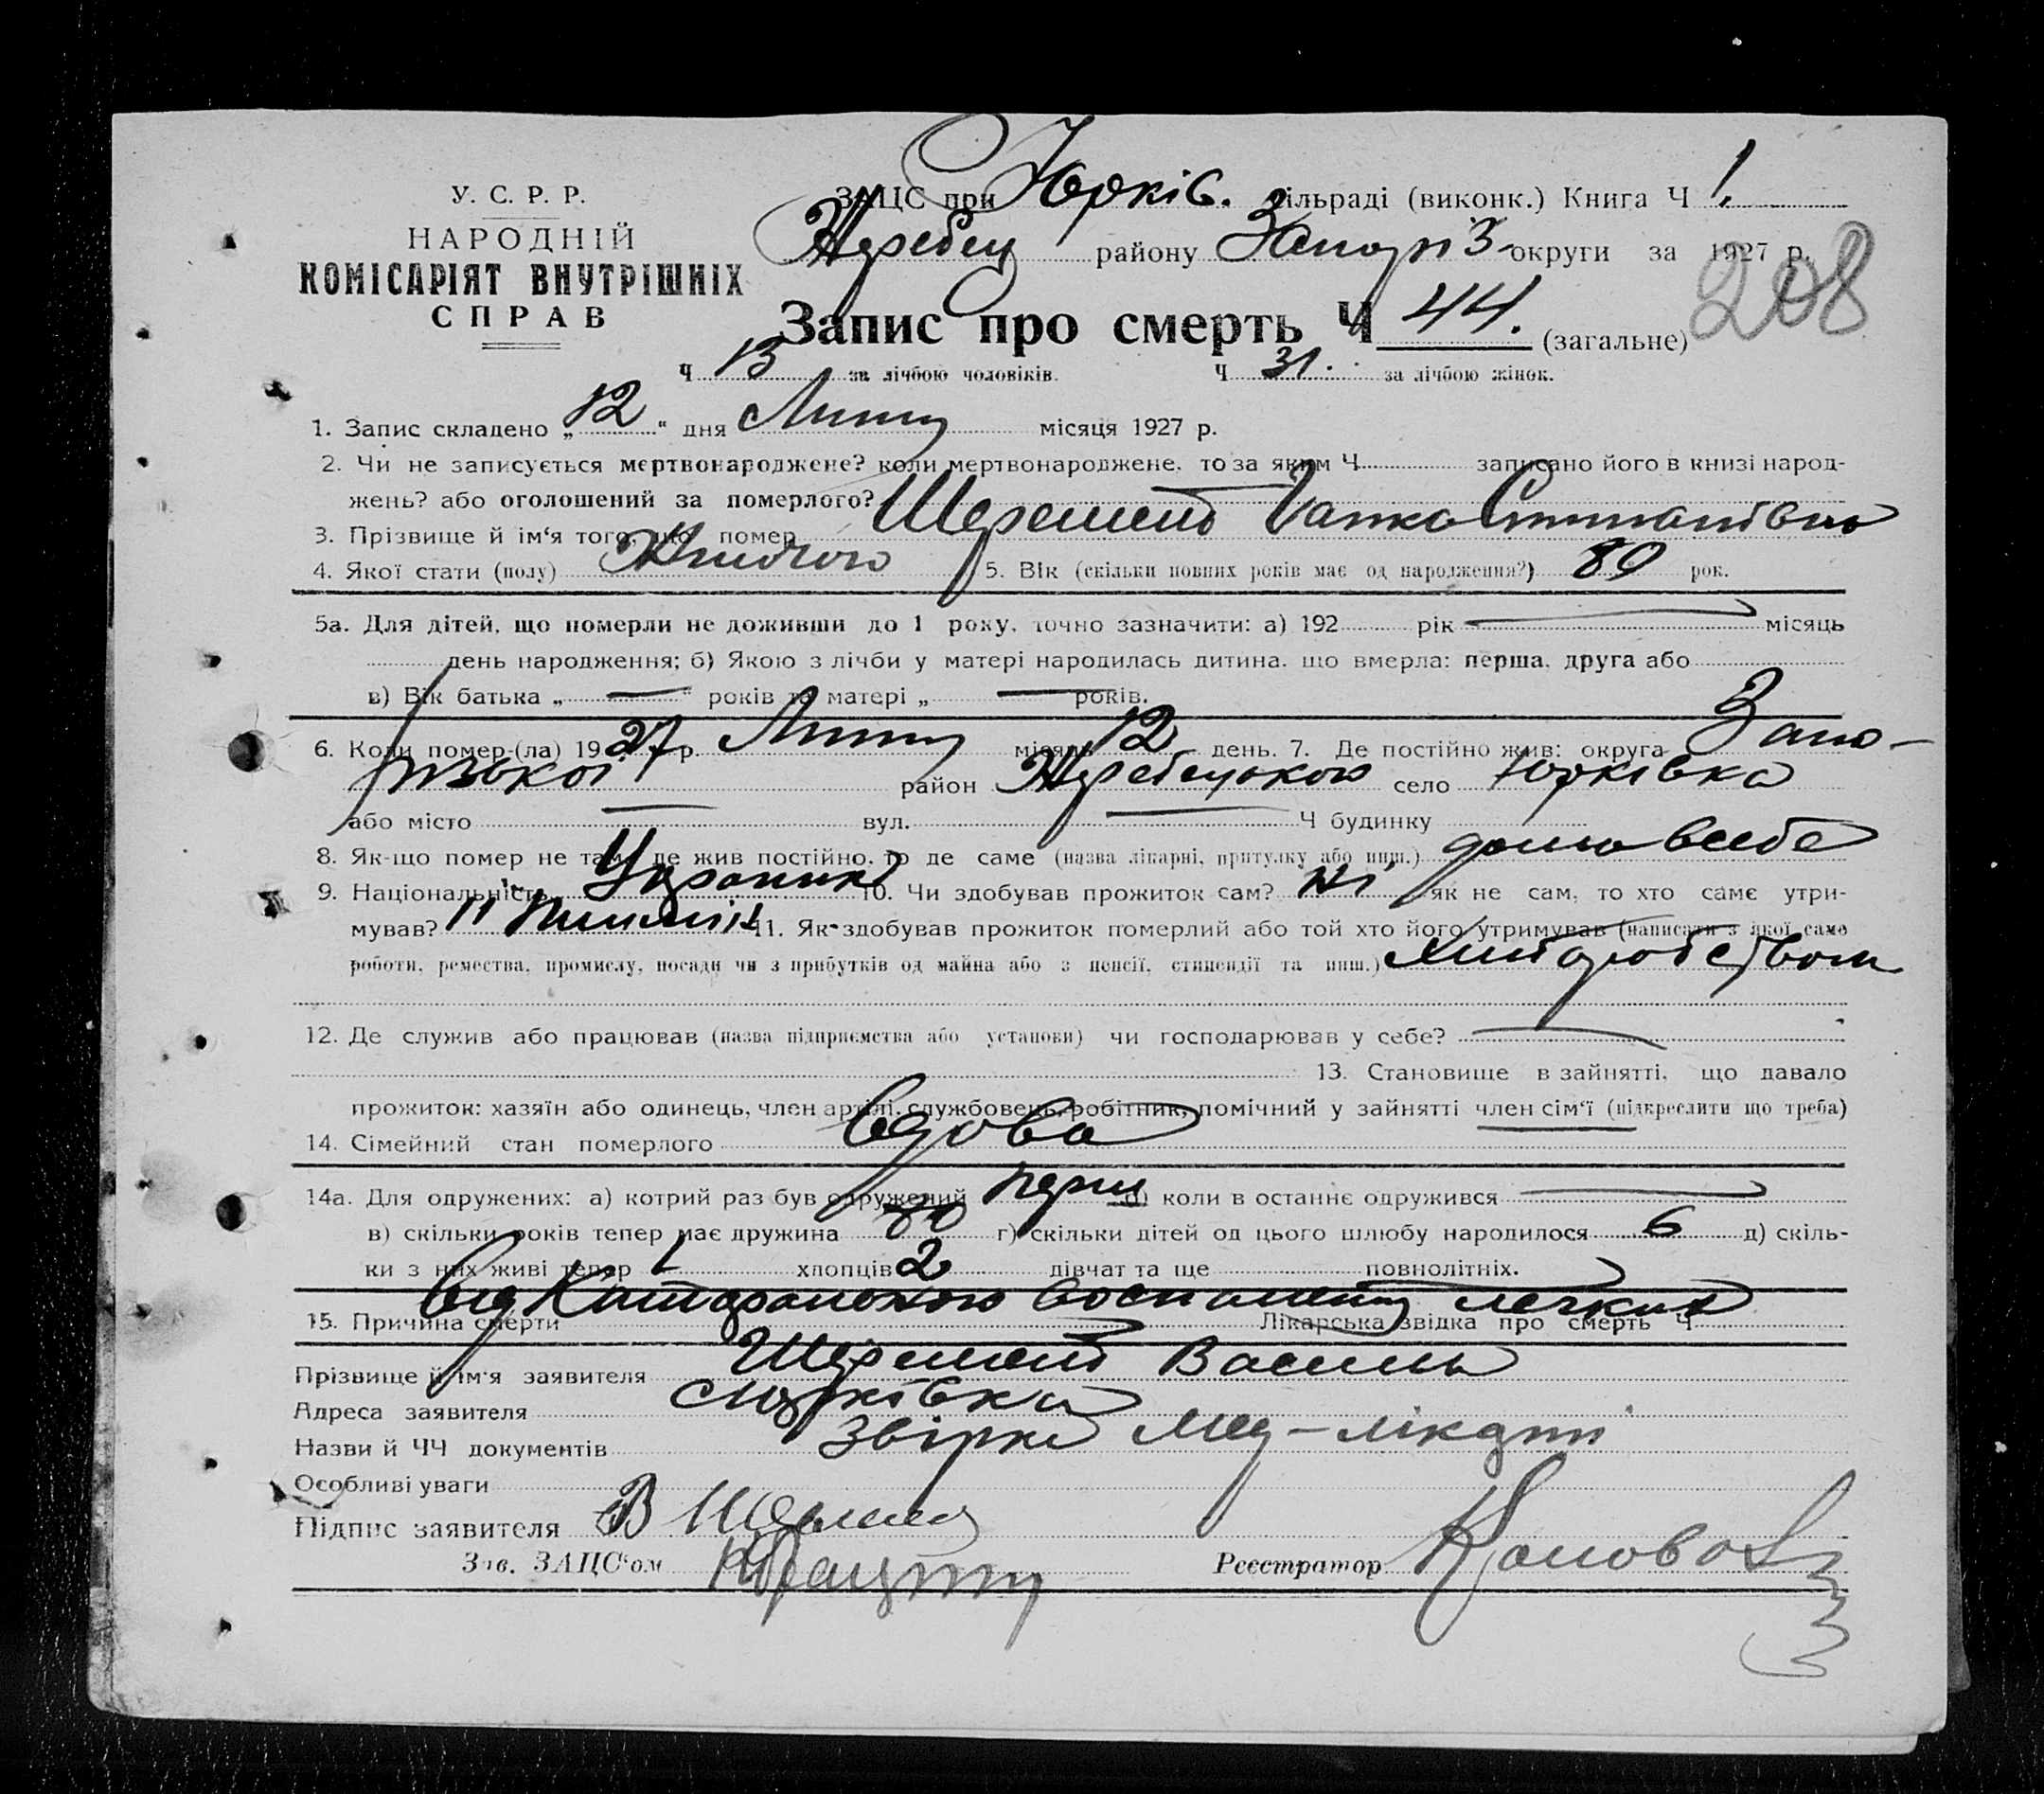 У. С. Р. Р.
НАРОДНІЙ
КОМІСАРІЯТ ВНУТРІШНІХ
СПРАВ
ЗАЦС при Юрків. сільраді (виконк.) Книга Ч 1.
Жеребец району Запоріз округи за 1927 р.
208
Запис про смерть Ч 44. (загальне)
Ч 13 за лічбою чоловіків. Ч 31. за лічбою жінок.
1. Запис складено „ 12 “ дня місяця 1927 р.
2. Чи не записується мертвонароджене? коли мертвонароджене, то за яким Ч записано його в книзі народ-
жень? або оголошений за померлого?
3. Прізвище й ім‘я того, що помер Шеремет Гапка Степанівна
4. Якої стати (полу) Жіночою 5. Вік (скільки повних років має од народження?) 80 рок.
5а. Для дітей, що померли не доживши до 1 року, точно зазначити: а) 192 рік місяць
день народження; б) Якою з лічби у матері народилась дитина, що вмерла: перша, друга або
в) Вік батька „ — “ років та матері „ — років.
6. Коли помер-(ла) 1927 р. місяць 12 день. 7. Де постійно жив: округа Запо-
різької район Жеребецького село Юрківка
або місто — вул. — Ч будинку
8. Як-що помер не там, де жив постійно, то де саме (назва лікарні, притулку або инш.) дома в себе
9. Національність Українка 10. Чи здобував прожиток сам? Ні як не сам, то хто саме утри-
мував? 11. Як здобував прожиток померлий або той хто його утримував (написати з якої саме
роботи, ремества, промислу, посади чи з прибутків од майна або з пенсії, стипендії та инш.) хліборобством
12. Де служив або працював (назва підприємства або установи) чи господарював у себе? —
13. Становище в зайнятті, що давало
прожиток: хазяїн або одинець, член артілі, службовець, робітник, помічний у зайнятті член сім‘ї (підкреслити що треба)
14. Сімейний стан померлого Вдова
14а. Для одружених: а) котрий раз був одружений перш б) коли в останнє одружився —
в) скільки років тепер має дружина 80 г) скільки дітей од цього шлюбу народилося 6 д) скіль-
ки з них живі тепер 1 хлопців 2 дівчат та ще повнолітніх.
15. Причина смерти Від легких Лікарська звідка про смерть Ч
Прізвище й ім‘я заявителя Шеремет Василь
Адреса заявителя с Юрківка
Назви й ЧЧ документів
Особливі уваги
Підпис заявителя В
Зав. ЗАЦС‘ом
Реєстратор